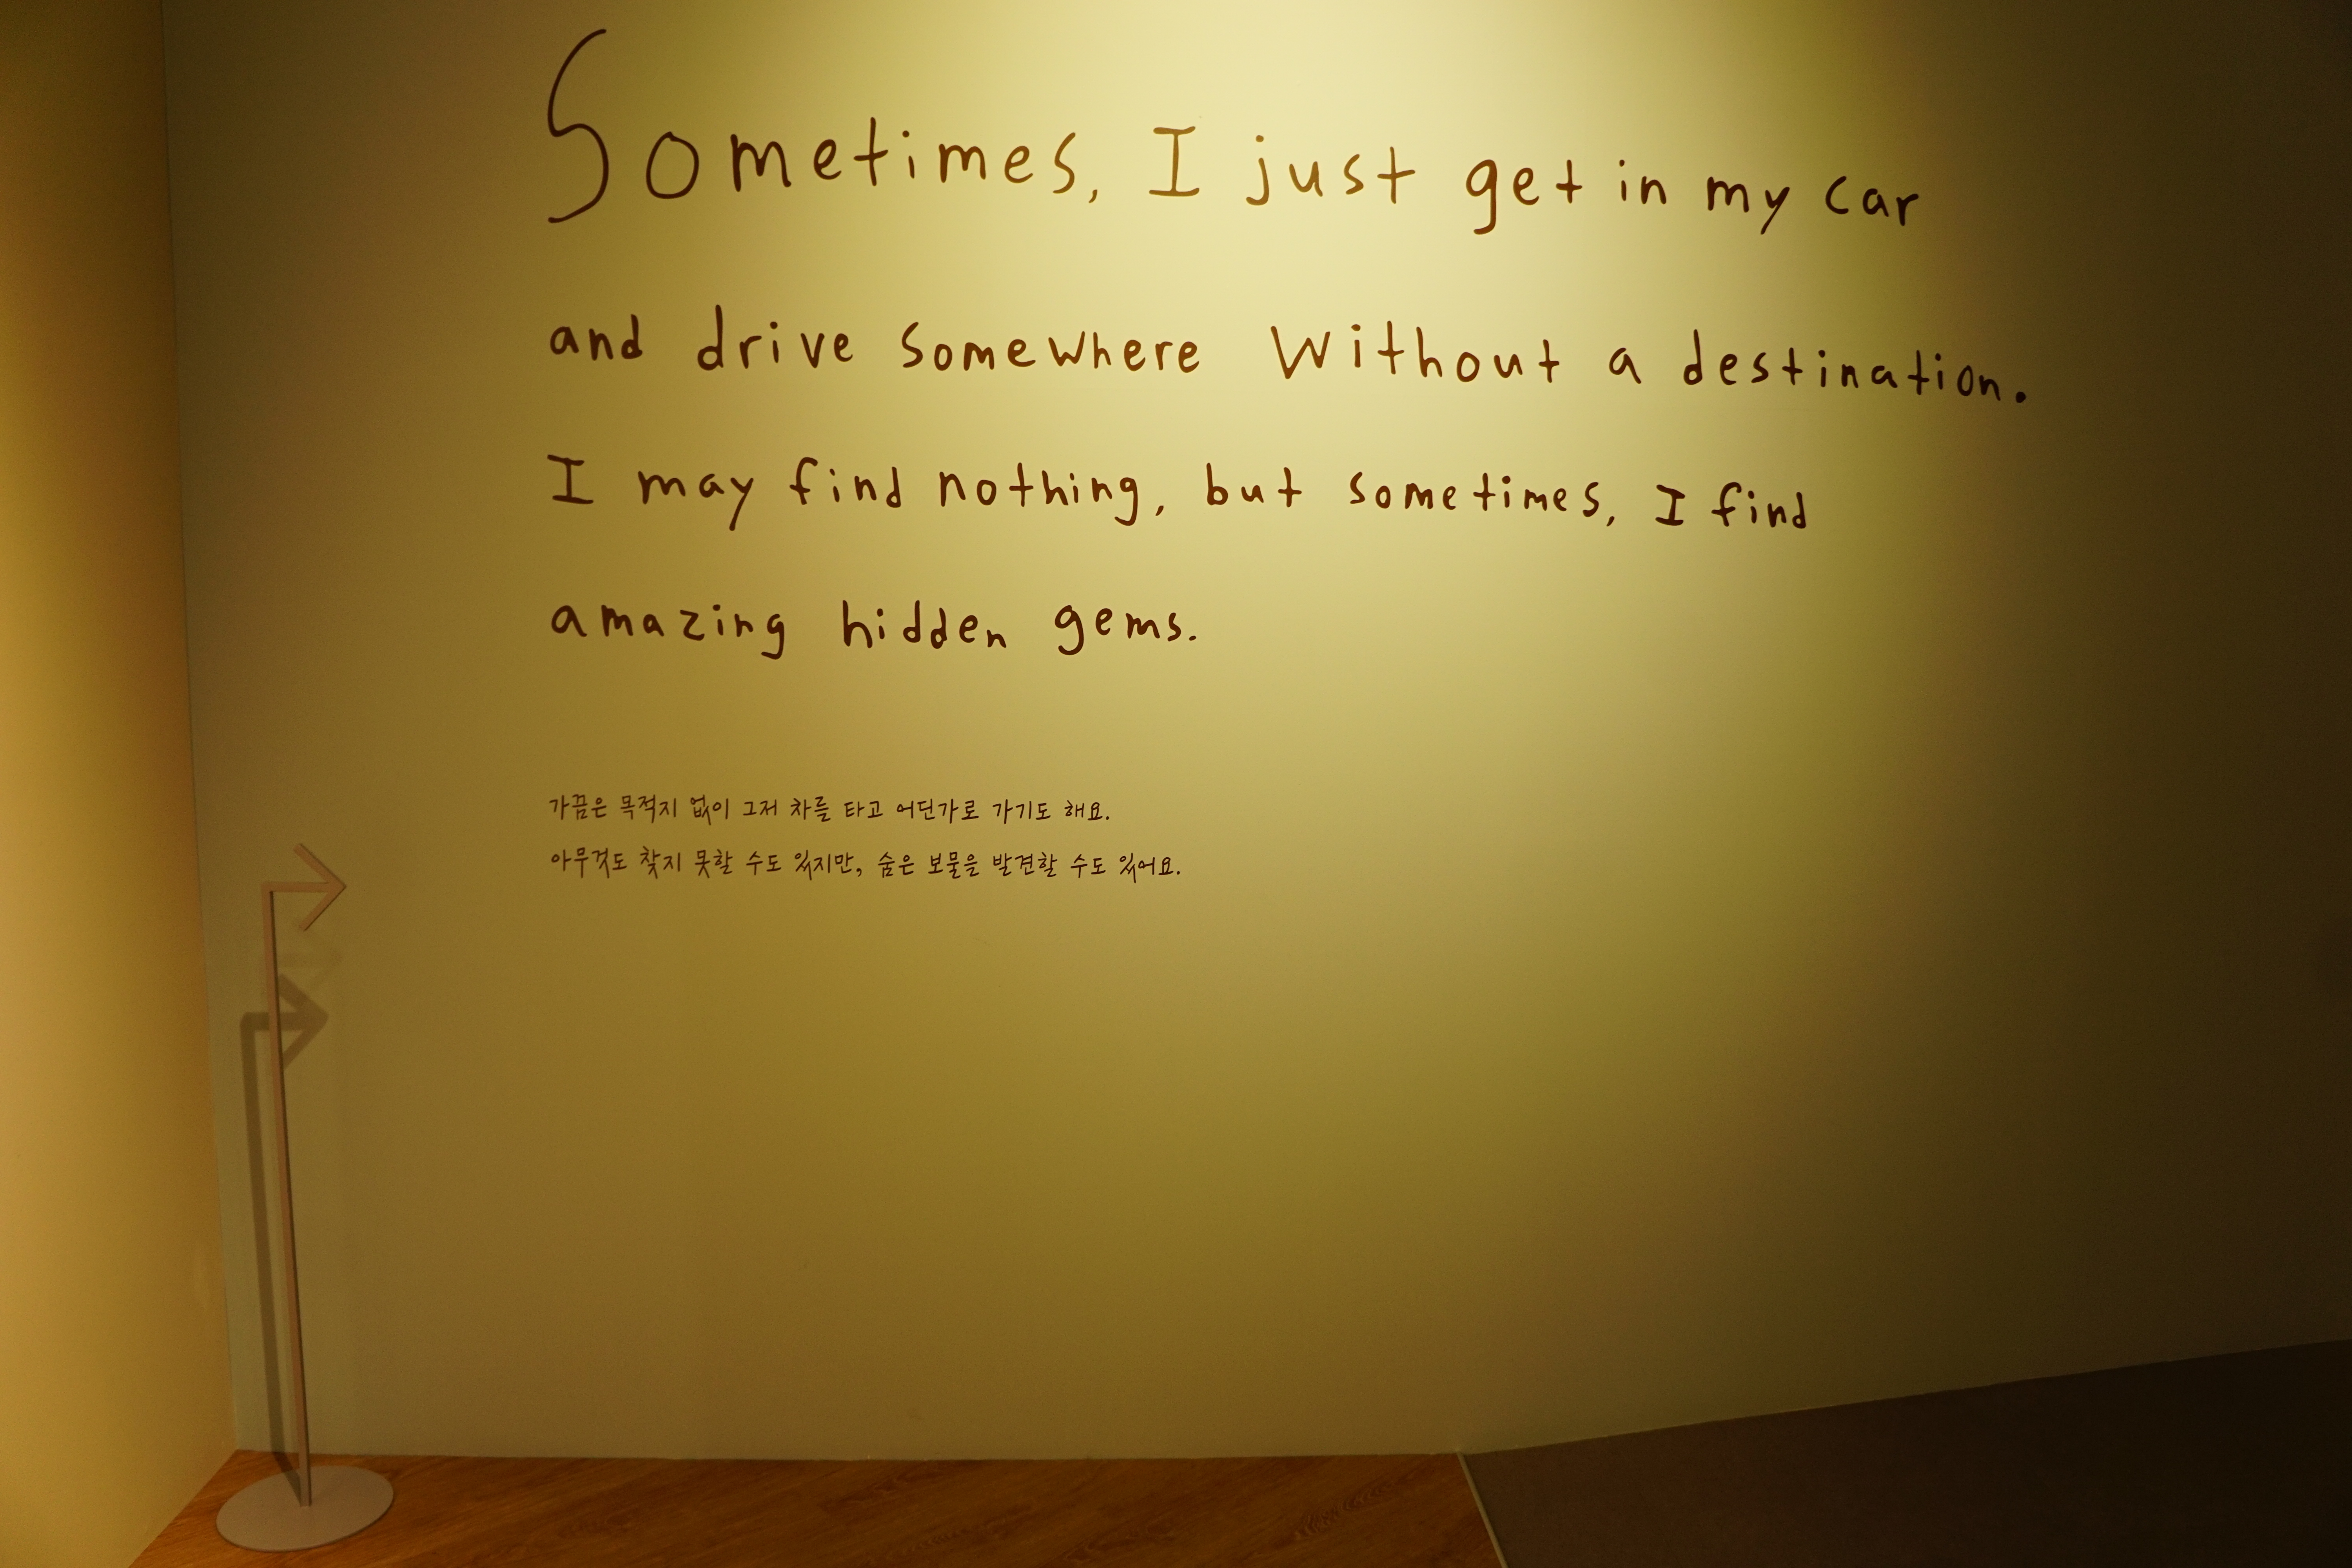 Sometimes, I just get in my car
and drive somewhere without a destination.
I may find nothing, but sometimes, I find
amazing hidden gems.
가끔은 목적지 없이 그저 차를 타고 어딘가로 가기도 해요.
아무것도 찾지 못할 수도 있지만, 숨은 보물을 발견할 수도 있어요.